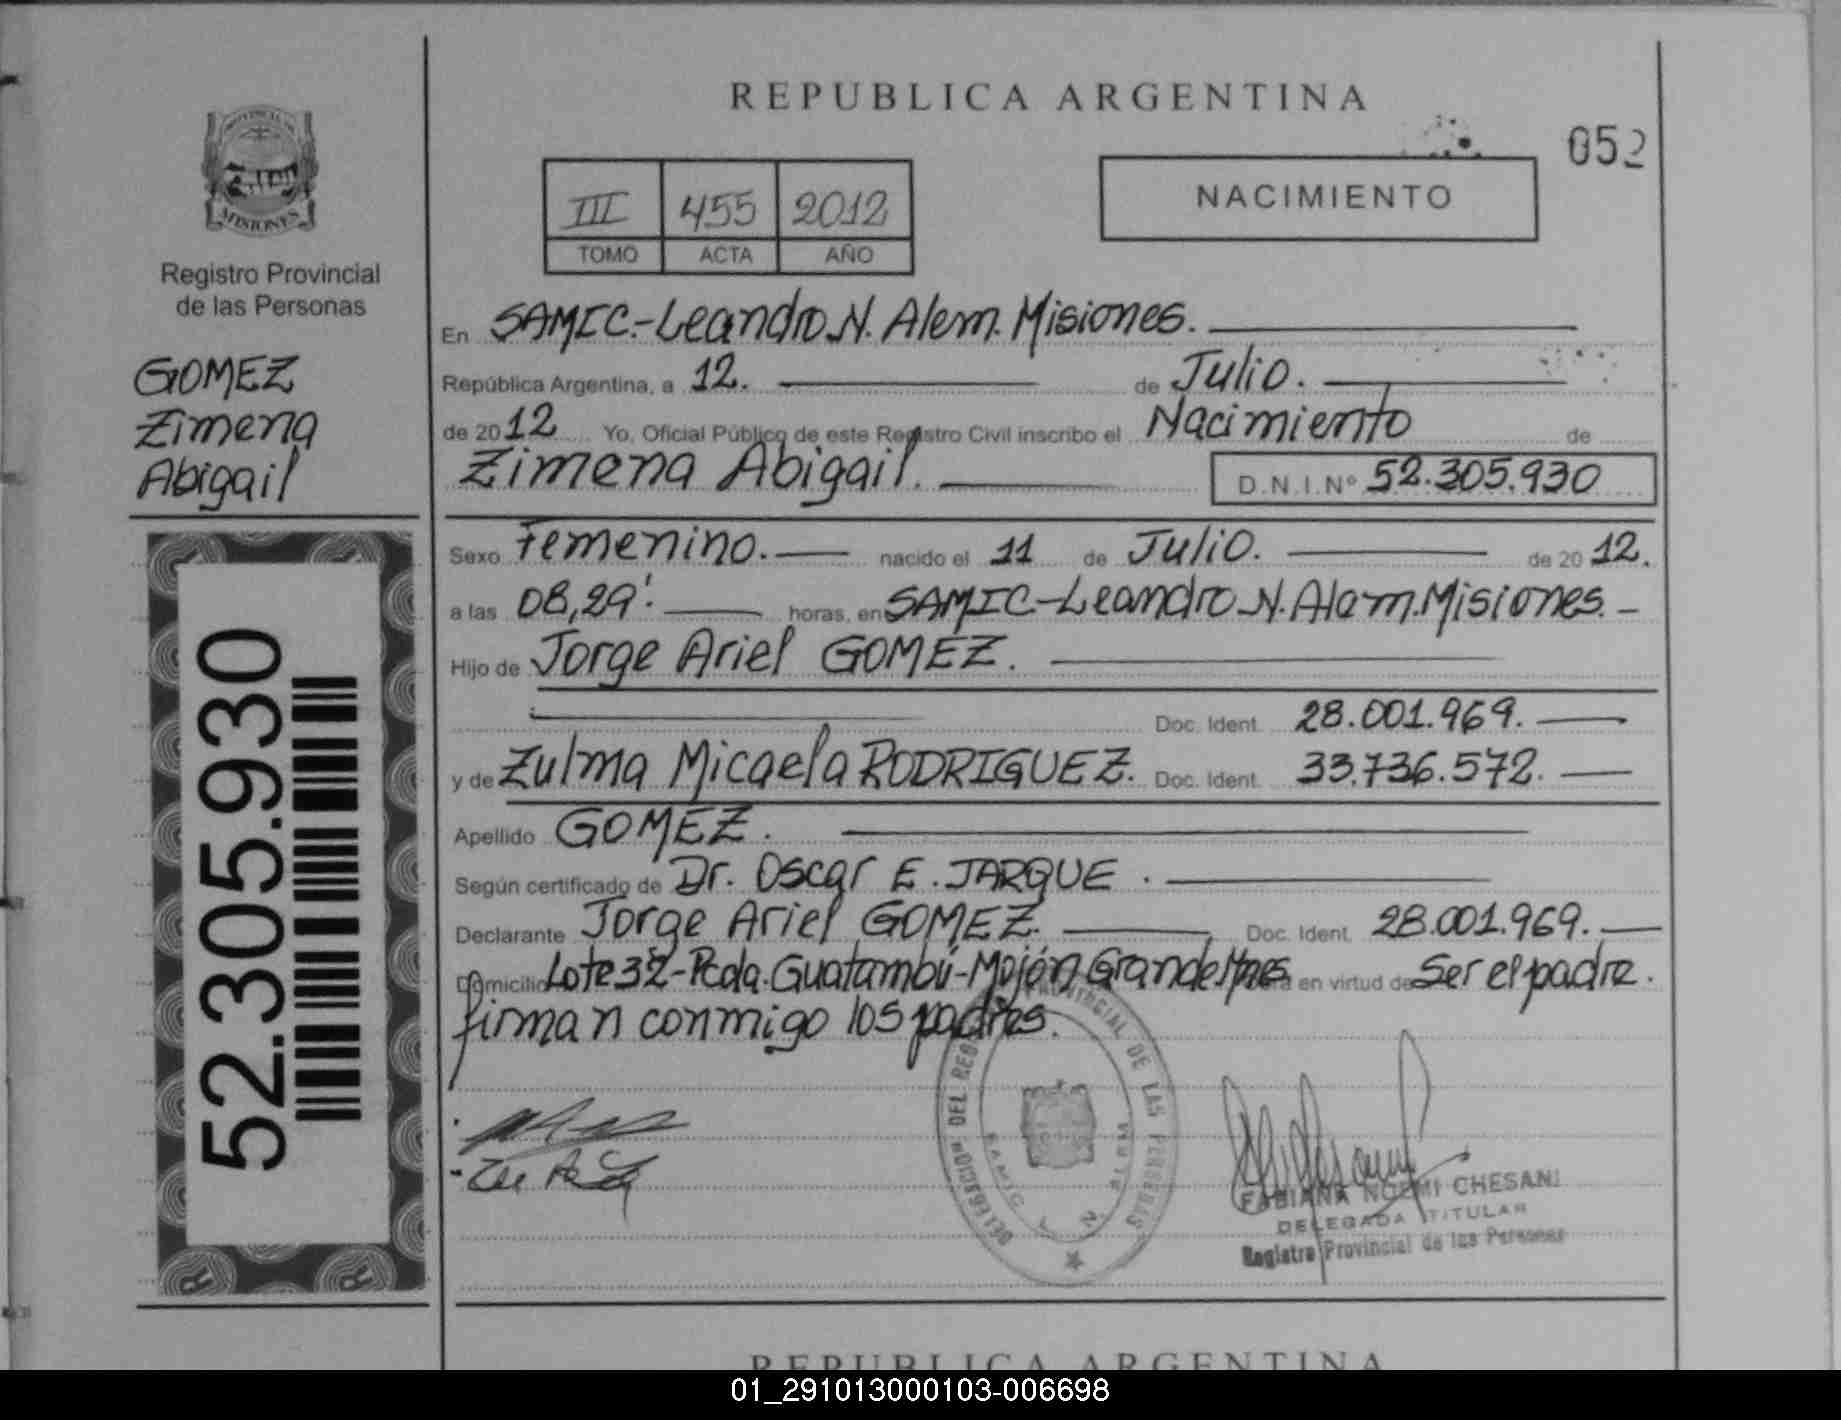 REPUBLICA ARGENTINA
052
PROVINCIA DE
MISIONES
Registro Provincial
de las Personas
GOMEZ
Zimena
Abigail
52.305.930
III 455 2012
TOMO ACTA AÑO
NACIMIENTO
En SAMIC.-Leandro N. Alem. Misiones.
República Argentina, a 12. de Julio.
de 2012 Yo, Oficial Público de este Registro Civil inscribo el Nacimiento de
Zimena Abigail. D.N.I.Nº 52.305.930
Sexo Femenino. nacido el 11 de Julio. de 2012.
a las 08,29'. horas, en SAMIC-Leandro N. Alem. Misiones.
Hijo de Jorge Ariel GOMEZ.
Doc. Ident. 28.001.969.
y de Zulma Micaela RODRIGUEZ. Doc. Ident. 33.736.572.
Apellido GOMEZ.
Según certificado de Dr. Oscar E. JARQUE.
Declarante Jorge Ariel GOMEZ. Doc. Ident. 28.001.969.
Domicilio Lote 32-Pcda. Guatambú-Mojón Grande Mnes en virtud de Ser el padre.
firman conmigo los padres.
DELEGACION DEL REGISTRO PROVINCIAL DE LAS PERSONAS
SAMIC L. N. ALEM
FABIANA NOEMI CHESANI
DELEGADA TITULAR
Registro Provincial de las Personas
REPUBLICA ARGENTINA
01_291013000103-006698